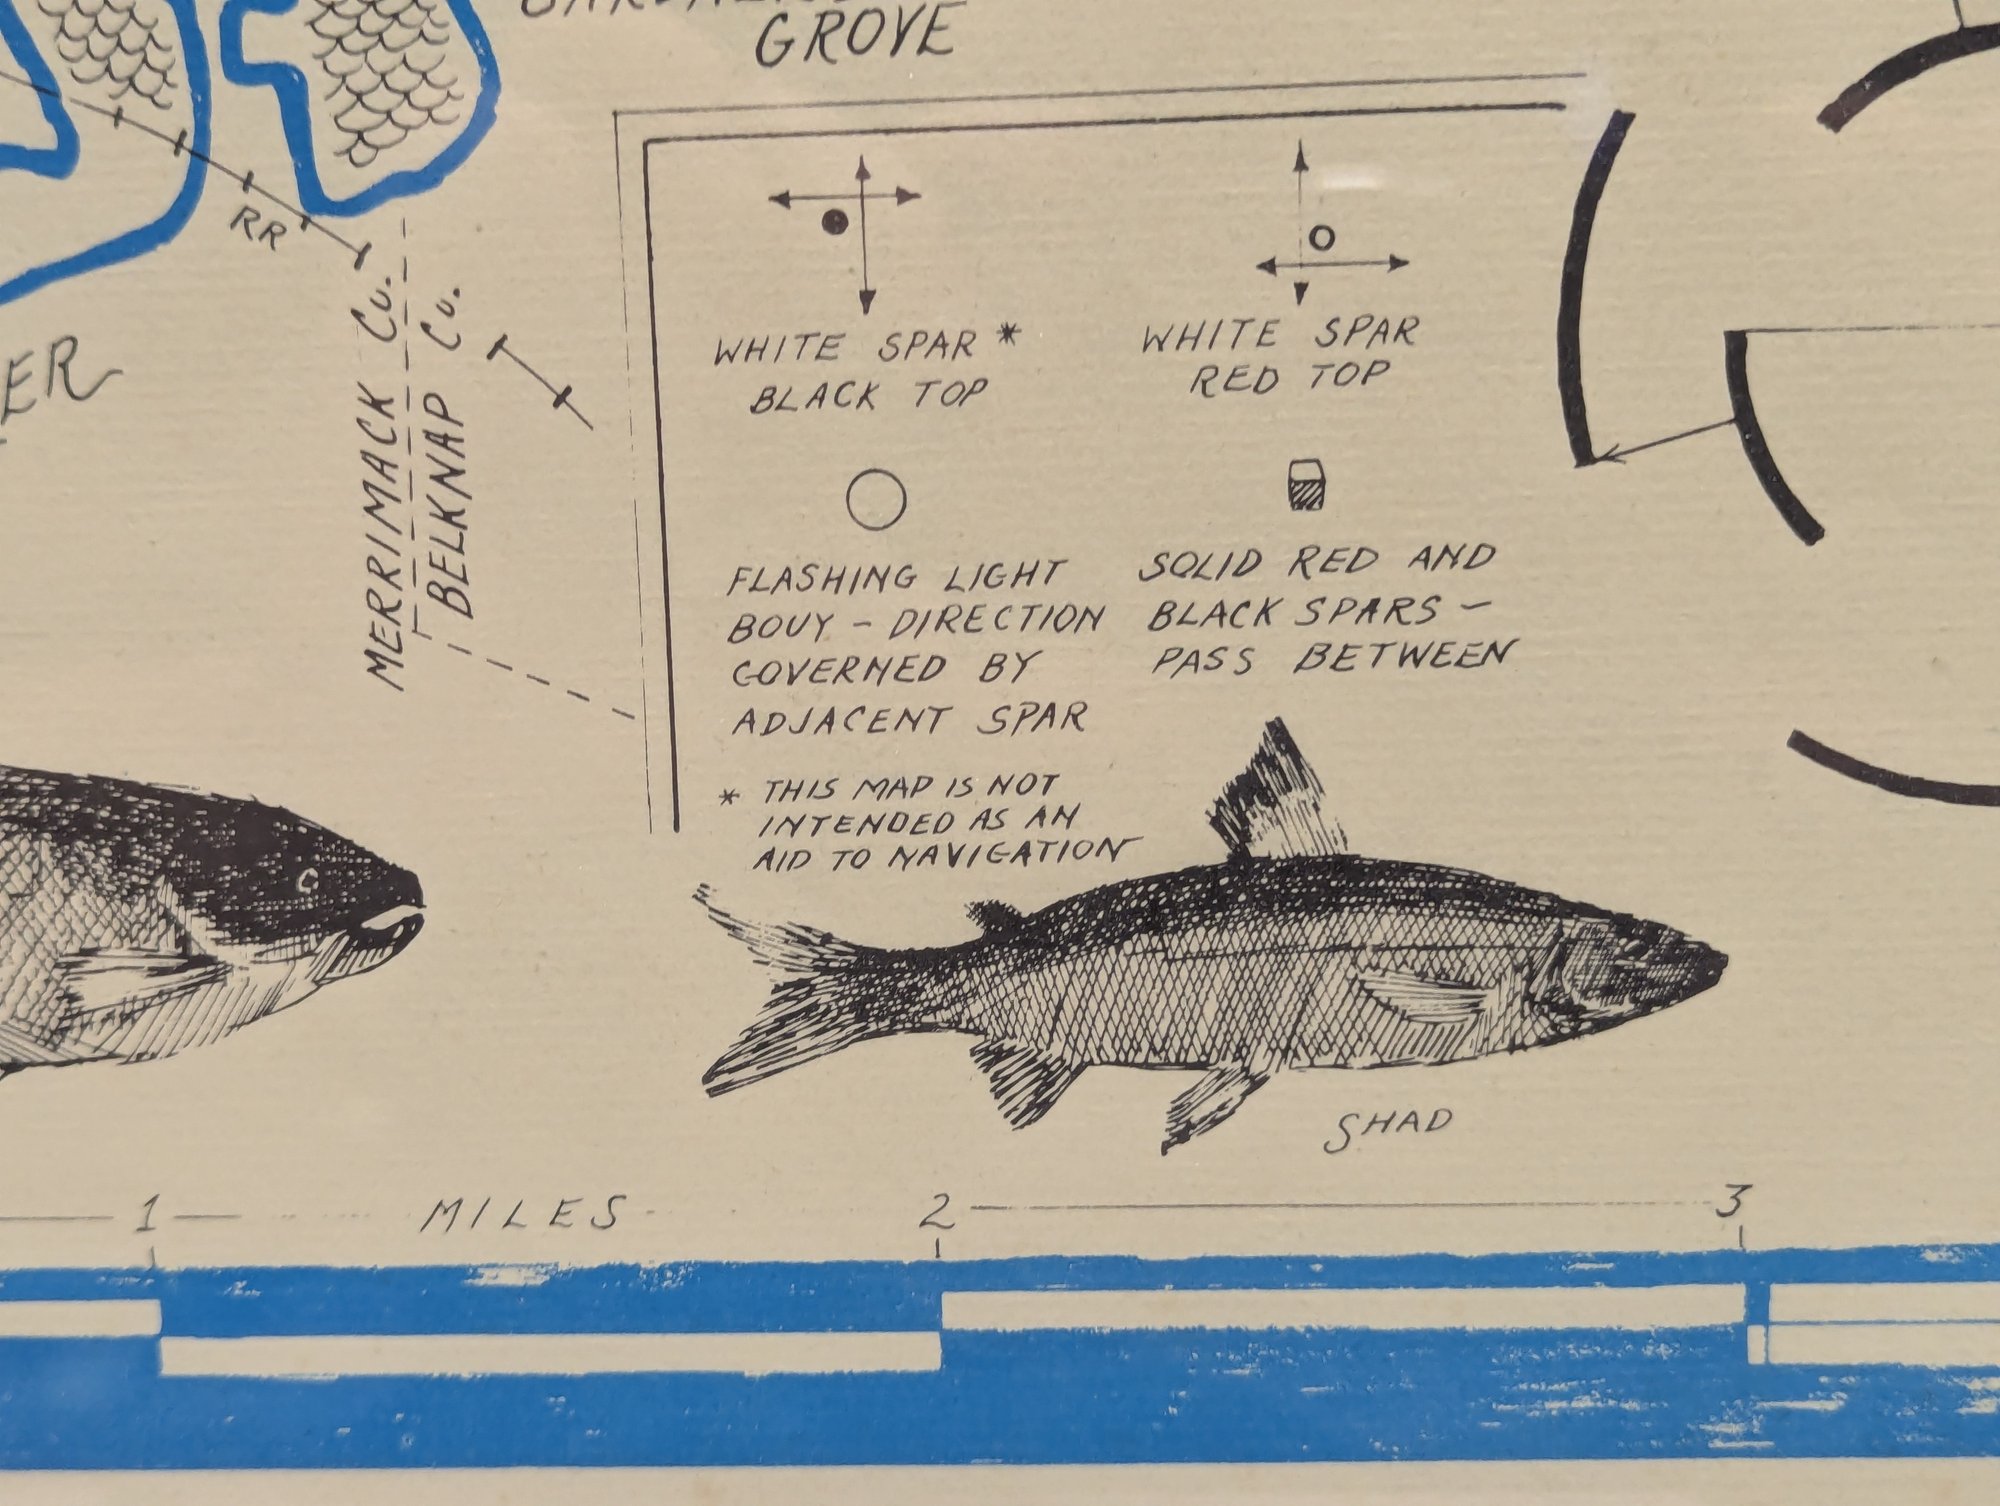 GROVE
RR
ER
MERRIMACK Co.
BELKNAP Co.
WHITE SPAR *
BLACK TOP
WHITE SPAR
RED TOP
FLASHING LIGHT
BOUY - DIRECTION
GOVERNED BY
ADJACENT SPAR
SOLID RED AND
BLACK SPARS -
PASS BETWEEN
* THIS MAP IS NOT
INTENDED AS AN
AID TO NAVIGATION
SHAD
1 MILES 2 3